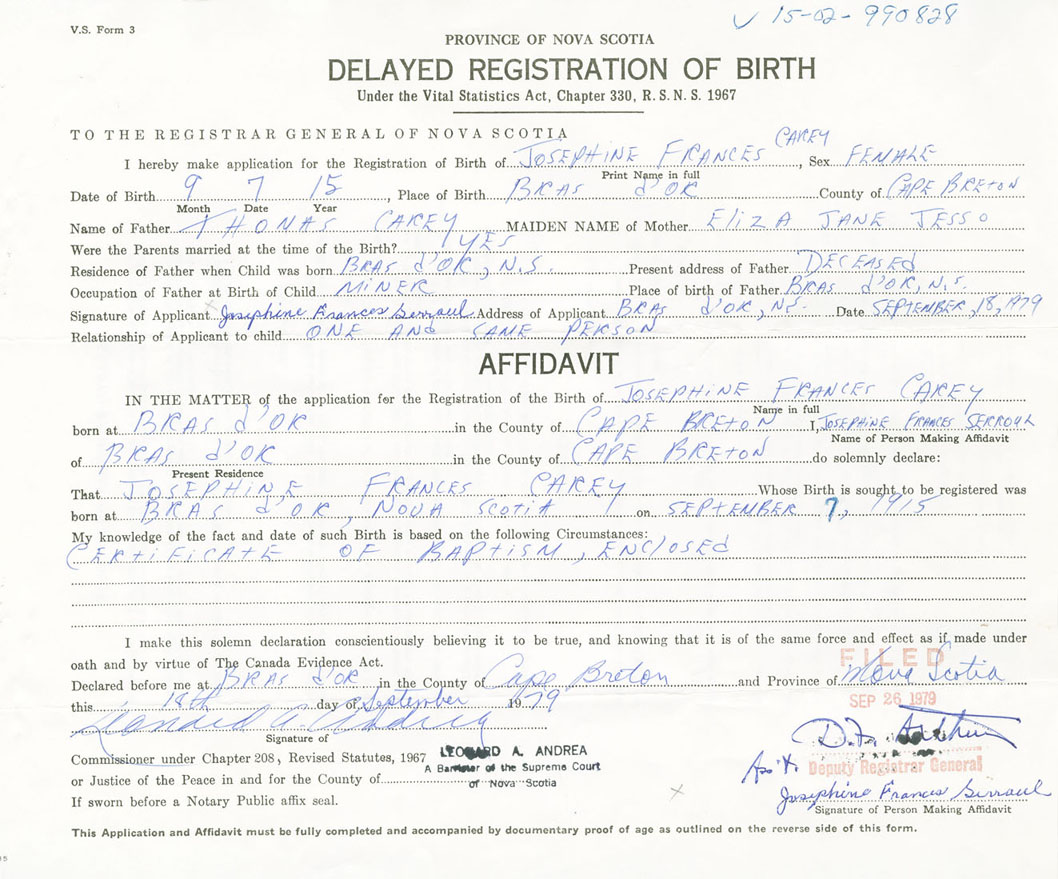 V.S. Form 3
15-02-990828
PROVINCE OF NOVA SCOTIA
DELAYED REGISTRATION OF BIRTH
Under the Vital Statistics Act, Chapter 330, R.S.N.S. 1967
TO THE REGISTRAR GENERAL OF NOVA SCOTIA
I hereby make application for the Registration of Birth of JOSEPHINE FRANCES CAREY, Sex FEMALE
Print Name in full
Date of Birth 9 7 15, Place of Birth BRAS d'OR County of CAPE BRETON
Month Date Year
Name of Father THOMAS CAREY MAIDEN NAME of Mother ELIZA JANE JESSO
Were the Parents married at the time of the Birth? YES
Residence of Father when Child was born BRAS d'OR, N.S. Present address of Father DECEASED
Occupation of Father at Birth of Child MINER Place of birth of Father BRAS d'OR, N.S.
Signature of Applicant Josephine Frances Serroul Address of Applicant BRAS d'OR, NS. Date SEPTEMBER, 18, 1979
Relationship of Applicant to child ONE AND SAME PERSON
AFFIDAVIT
IN THE MATTER of the application for the Registration of the Birth of JOSEPHINE FRANCES CAREY
Name in full
born at BRAS d'OR in the County of CAPE BRETON I, JOSEPHINE FRANCES SERROUL
Name of Person Making Affidavit
of BRAS d'OR in the County of CAPE BRETON do solemnly declare:
Present Residence
That JOSEPHINE FRANCES CAREY Whose Birth is sought to be registered was
born at BRAS d'OR, NOVA SCOTIA on SEPTEMBER 7, 1915
My knowledge of the fact and date of such Birth is based on the following Circumstances:
CERTIFICATE OF BAPTISM, ENCLOSED
I make this solemn declaration conscientiously believing it to be true, and knowing that it is of the same force and effect as if made under
oath and by virtue of The Canada Evidence Act.
FILED
Declared before me at BRAS d'OR in the County of Cape Breton and Province of Nova Scotia
this 18th day of September 1979
SEP 26 1979
Leonard A. Andrea
Signature of
Commissioner under Chapter 208, Revised Statutes, 1967 LEONARD A. ANDREA
A Barrister of the Supreme Court
or Justice of the Peace in and for the County of of Nova Scotia
Ass't. Deputy Registrar General
If sworn before a Notary Public affix seal.
Josephine Frances Serroul
Signature of Person Making Affidavit
This Application and Affidavit must be fully completed and accompanied by documentary proof of age as outlined on the reverse side of this form.